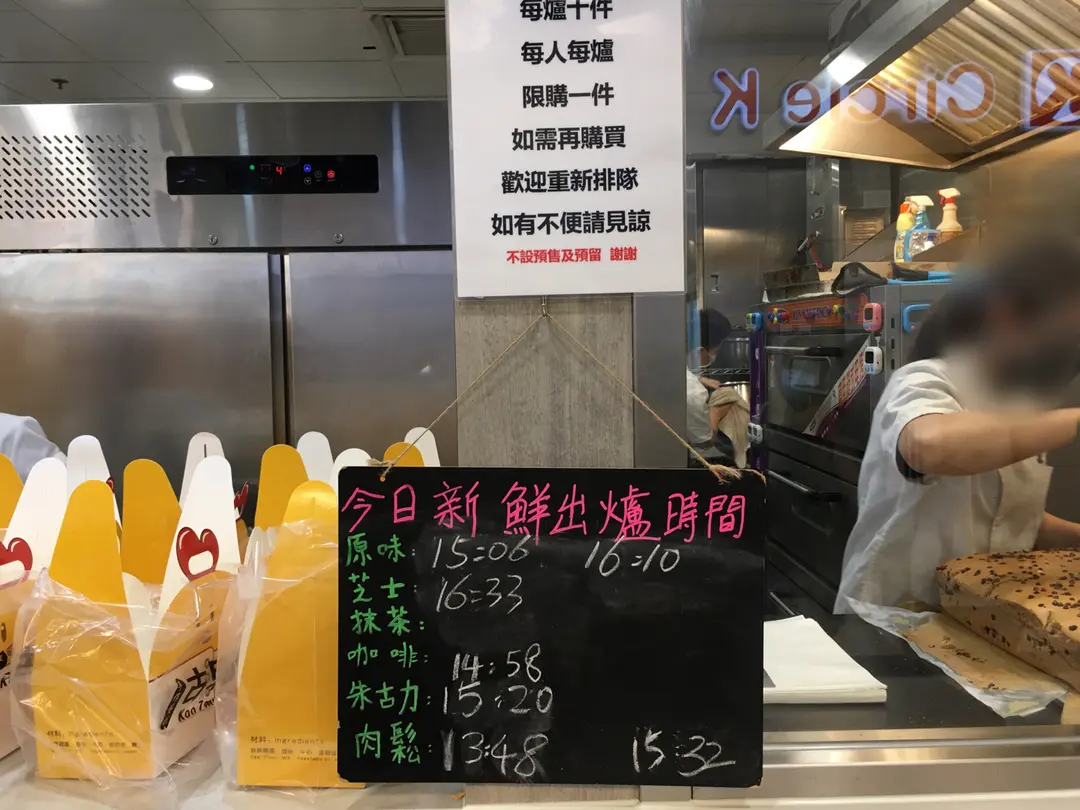 每爐十件
每人每爐
限購一件
如需再購買
歡迎重新排隊
如有不便請見諒
不設預售及預留 謝謝
Circle K
今日新鮮出爐時間
原味: 15:06 16:10
芝士: 16:33
抹茶:
咖啡: 14:58
朱古力: 15:20
肉鬆: 13:48 15:32
材料: Ingredients
材料: Ingredients